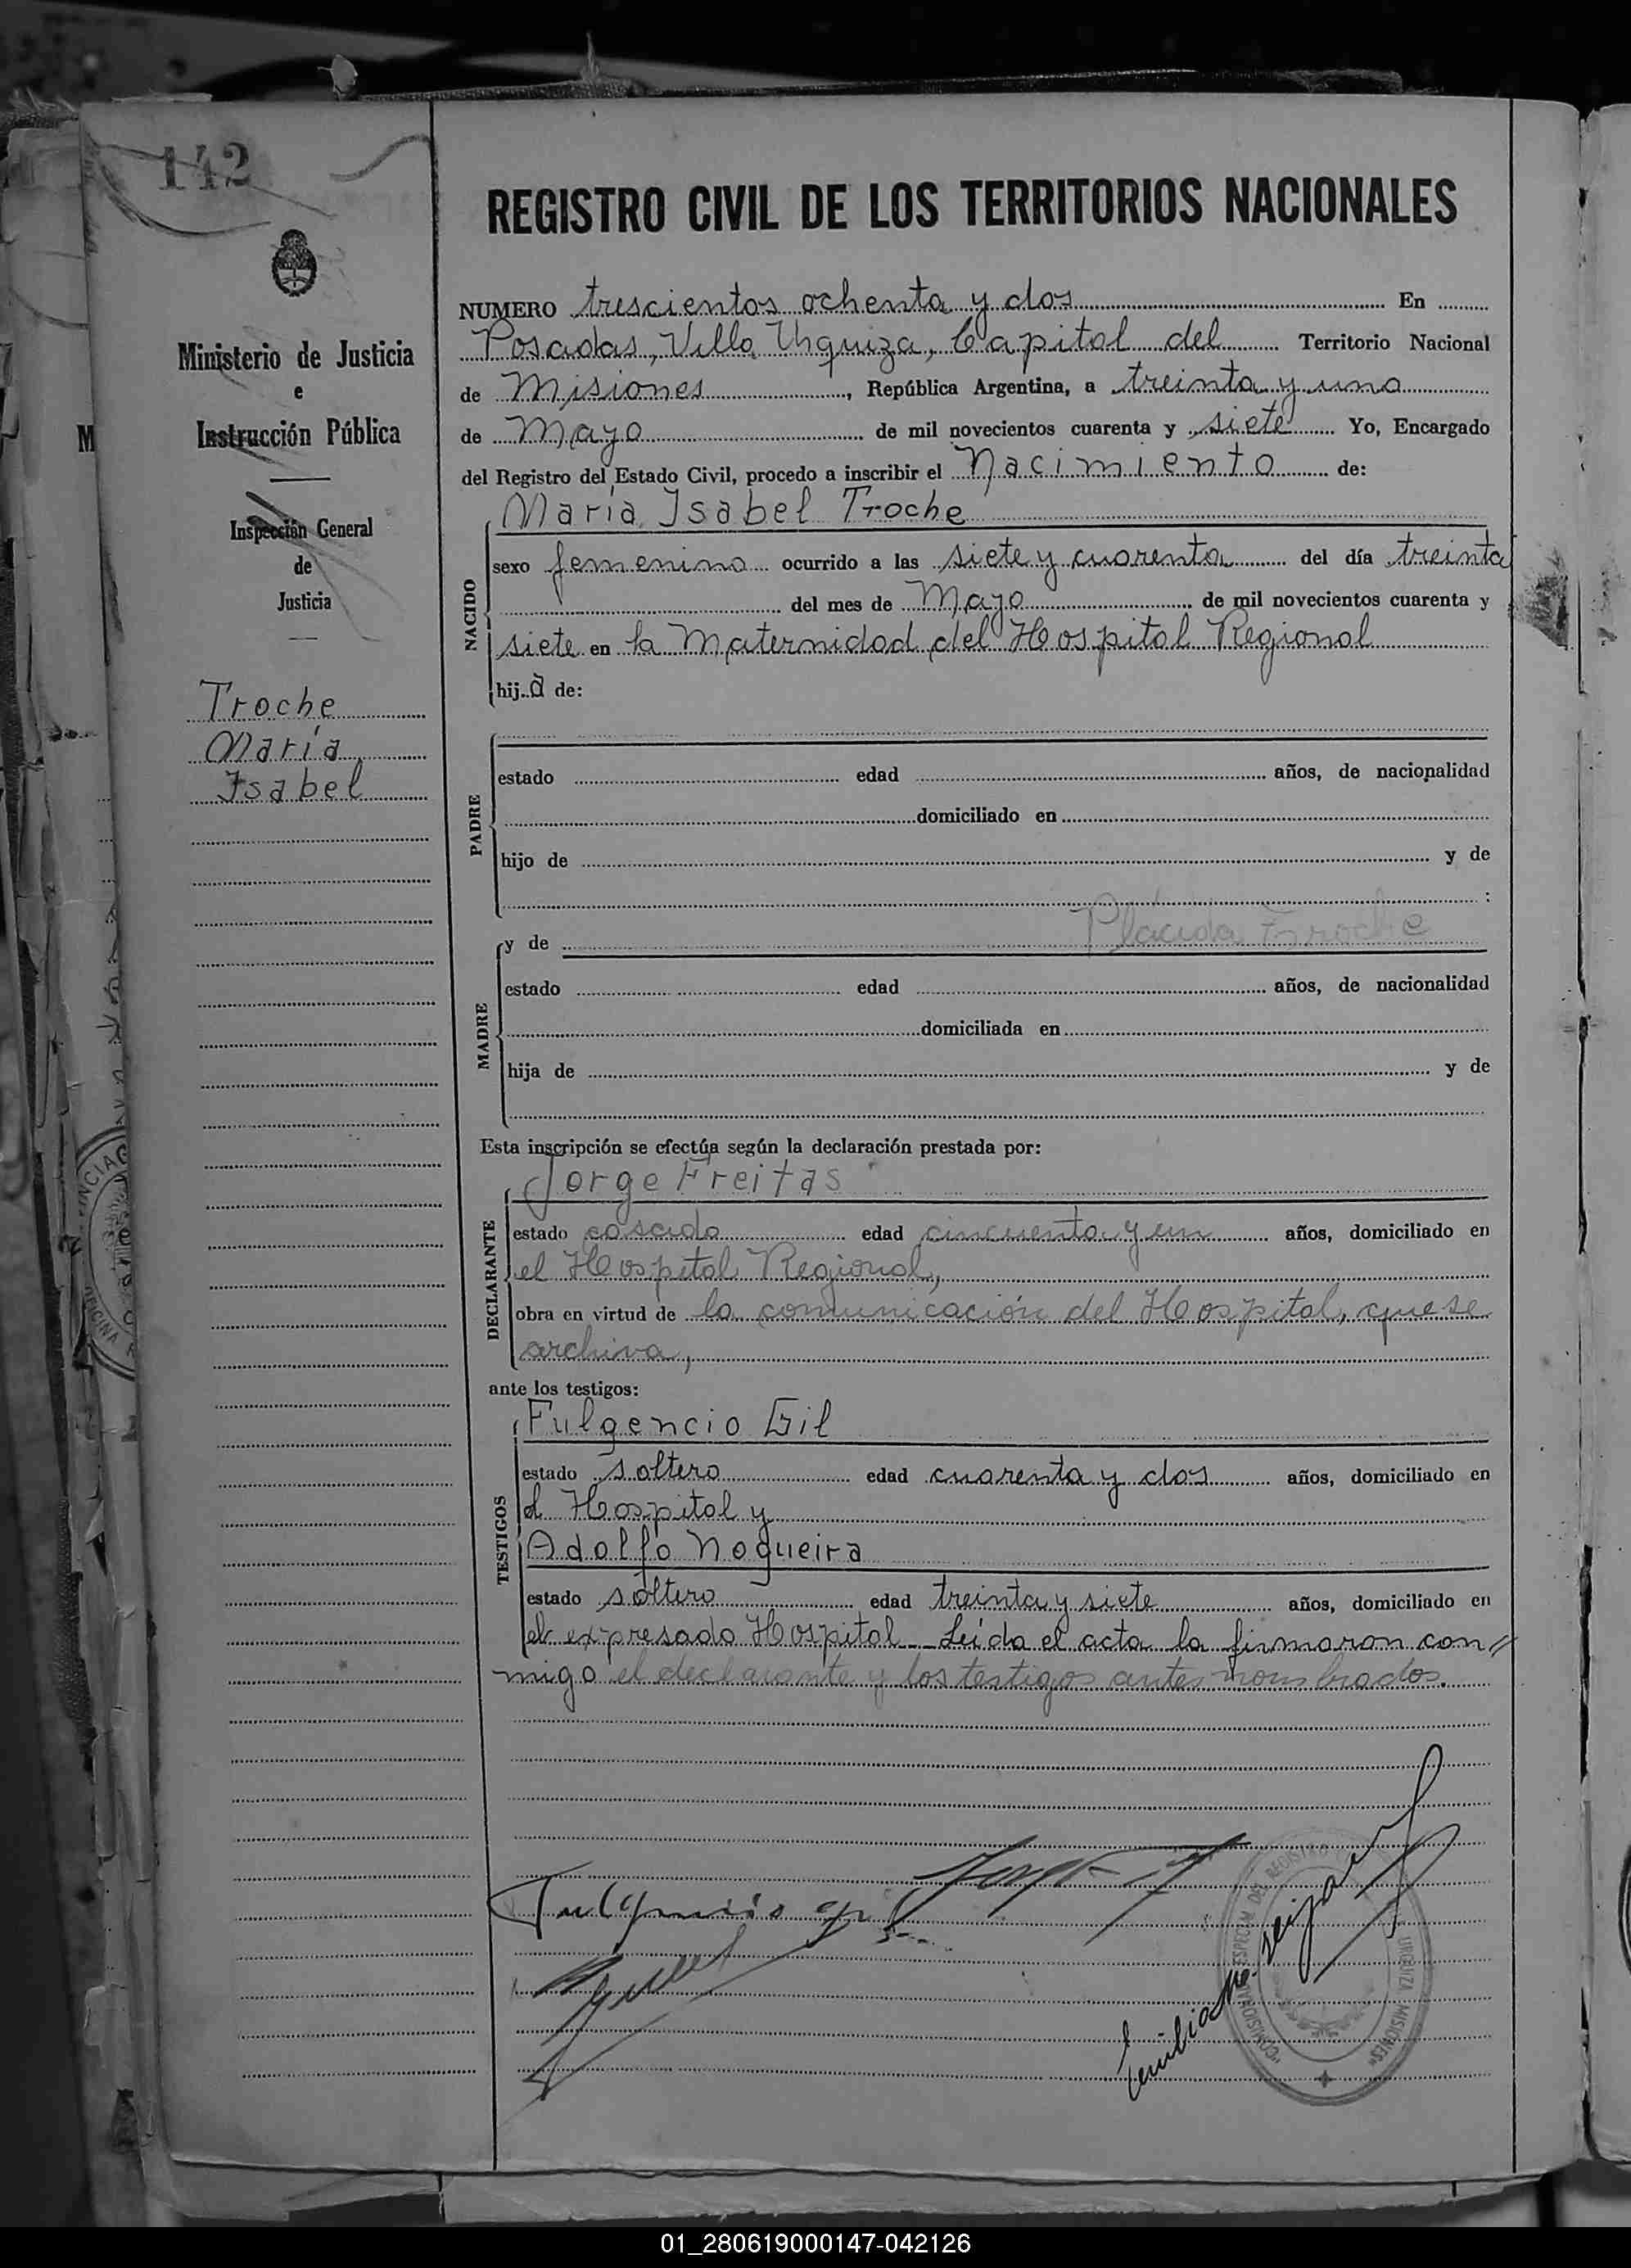 142
Ministerio de Justicia
e
Instrucción Pública
Inspección General
de
Justicia
Troche
María
Isabel
REGISTRO CIVIL DE LOS TERRITORIOS NACIONALES
NUMERO trescientos ochenta y dos En
Posadas, Villa Urquiza, Capital del Territorio Nacional
de Misiones, República Argentina, a treinta y uno
de Mayo de mil novecientos cuarenta y siete Yo, Encargado
del Registro del Estado Civil, procedo a inscribir el Nacimiento de:
NACIDO
María Isabel Troche
sexo femenino ocurrido a las siete y cuarenta del día treinta
del mes de Mayo de mil novecientos cuarenta y
siete en la Maternidad del Hospital Regional
hija de:
PADRE
estado edad años, de nacionalidad
domiciliado en
hijo de y de
:
MADRE
y de Plácida Troche
estado edad años, de nacionalidad
domiciliada en
hija de y de
Esta inscripción se efectúa según la declaración prestada por:
DECLARANTE
Jorge Freitas
estado casado edad cincuenta y un años, domiciliado en
el Hospital Regional,
obra en virtud de la comunicación del Hospital, que se
archiva,
ante los testigos:
TESTIGOS
Fulgencio Gil
estado soltero edad cuarenta y dos años, domiciliado en
el Hospital y
Adolfo Nogueira
estado soltero edad treinta y siete años, domiciliado en
el expresado Hospital. Leída el acta la firmaron con//
migo el declarante y los testigos antes nombrados.
Fulgencio Gil
01_280619000147-042126